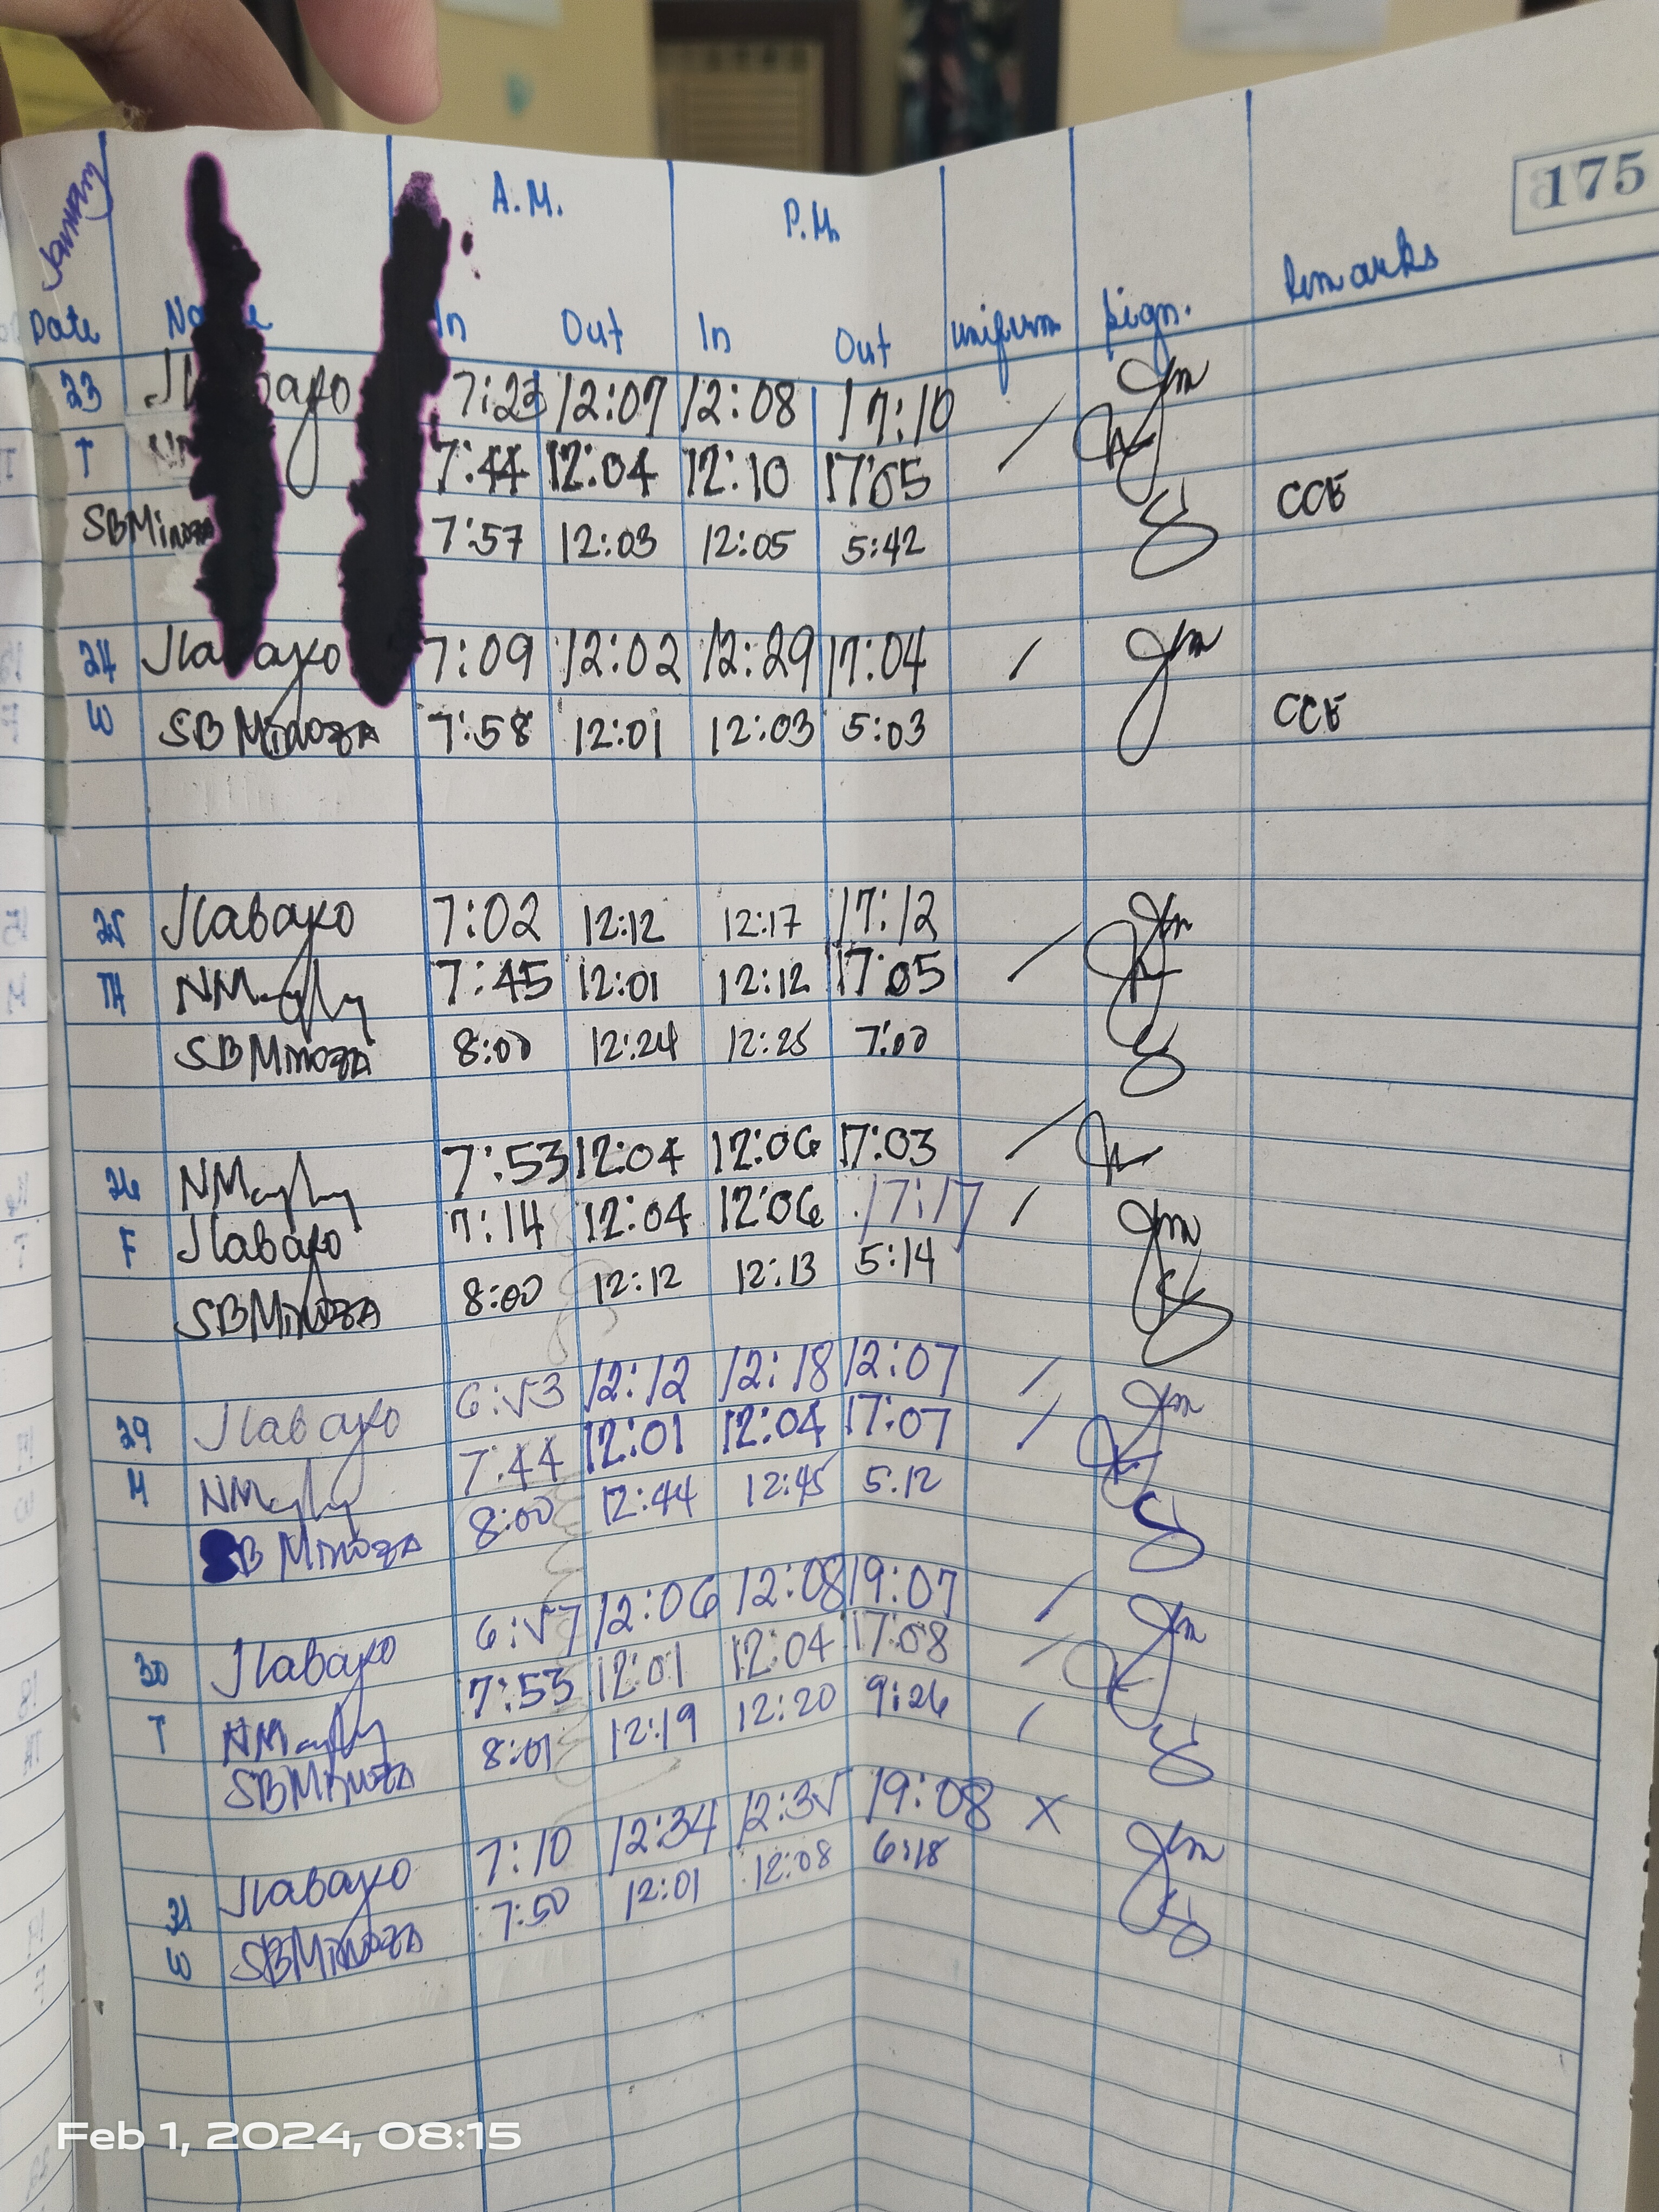 175
January A.M. P.M.
Date In Out In Out uniform Sign. Remarks
23 7:23 12:07 12:08 17:10 /
T 7:44 12:04 12:10 17:05
SBMinoza 7:57 12:03 12:05 5:42 CCE
24 Jlabayo 7:09 12:02 12:29 17:04 /
W SBMinoza 7:58 12:01 12:03 5:03 CCE
25 Jlabayo 7:02 12:12 12:17 17:12 /
TH 7:45 12:01 12:12 17:05
SBMinoza 8:00 12:24 12:25 7:00
26 7:53 12:04 12:06 17:03 /
F Jlabayo 7:14 12:04 12:06 17:17 /
SBMinoza 8:00 12:12 12:13 5:14
29 Jlabayo 6:53 12:12 12:18 12:07 /
M 7:44 12:01 12:04 17:07 /
SBMinoza 8:00 12:44 12:45 5:12
30 Jlabayo 6:57 12:06 12:08 19:07 /
T 7:53 12:01 12:04 17:08 /
SBMinoza 8:01 12:19 12:20 9:26 /
31 Jlabayo 7:10 12:34 12:35 19:08 X
W SBMinoza 7:50 12:01 12:08 6:18
Feb 1, 2024, 08:15